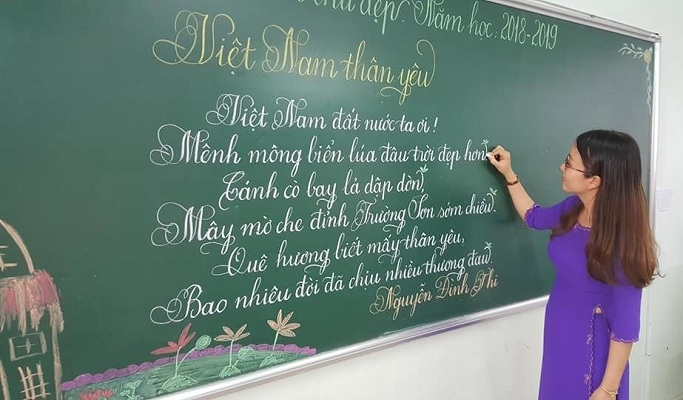 chữ đẹp. Năm học: 2018-2019
Việt Nam thân yêu
Việt Nam đất nước ta ơi!
Mênh mông biển lúa đâu trời đẹp hơn
Cánh cò bay lả dập dờn,
Mây mờ che đỉnh Trường Sơn sớm chiều.
Quê hương biết mấy thân yêu,
Bao nhiêu đời đã chịu nhiều thương đau
Nguyễn Đình Thi